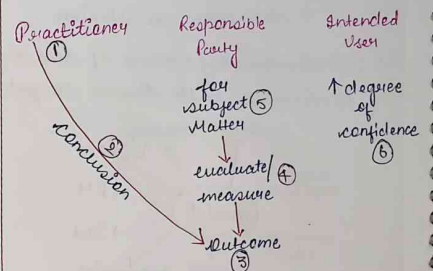 Practitioner
①
Responsible
Party
Intended
User
for
subject ⑤
Matter
↑ degree
of
confidence
⑥
②
conclusion
evaluate/ ④
measure
outcome
③